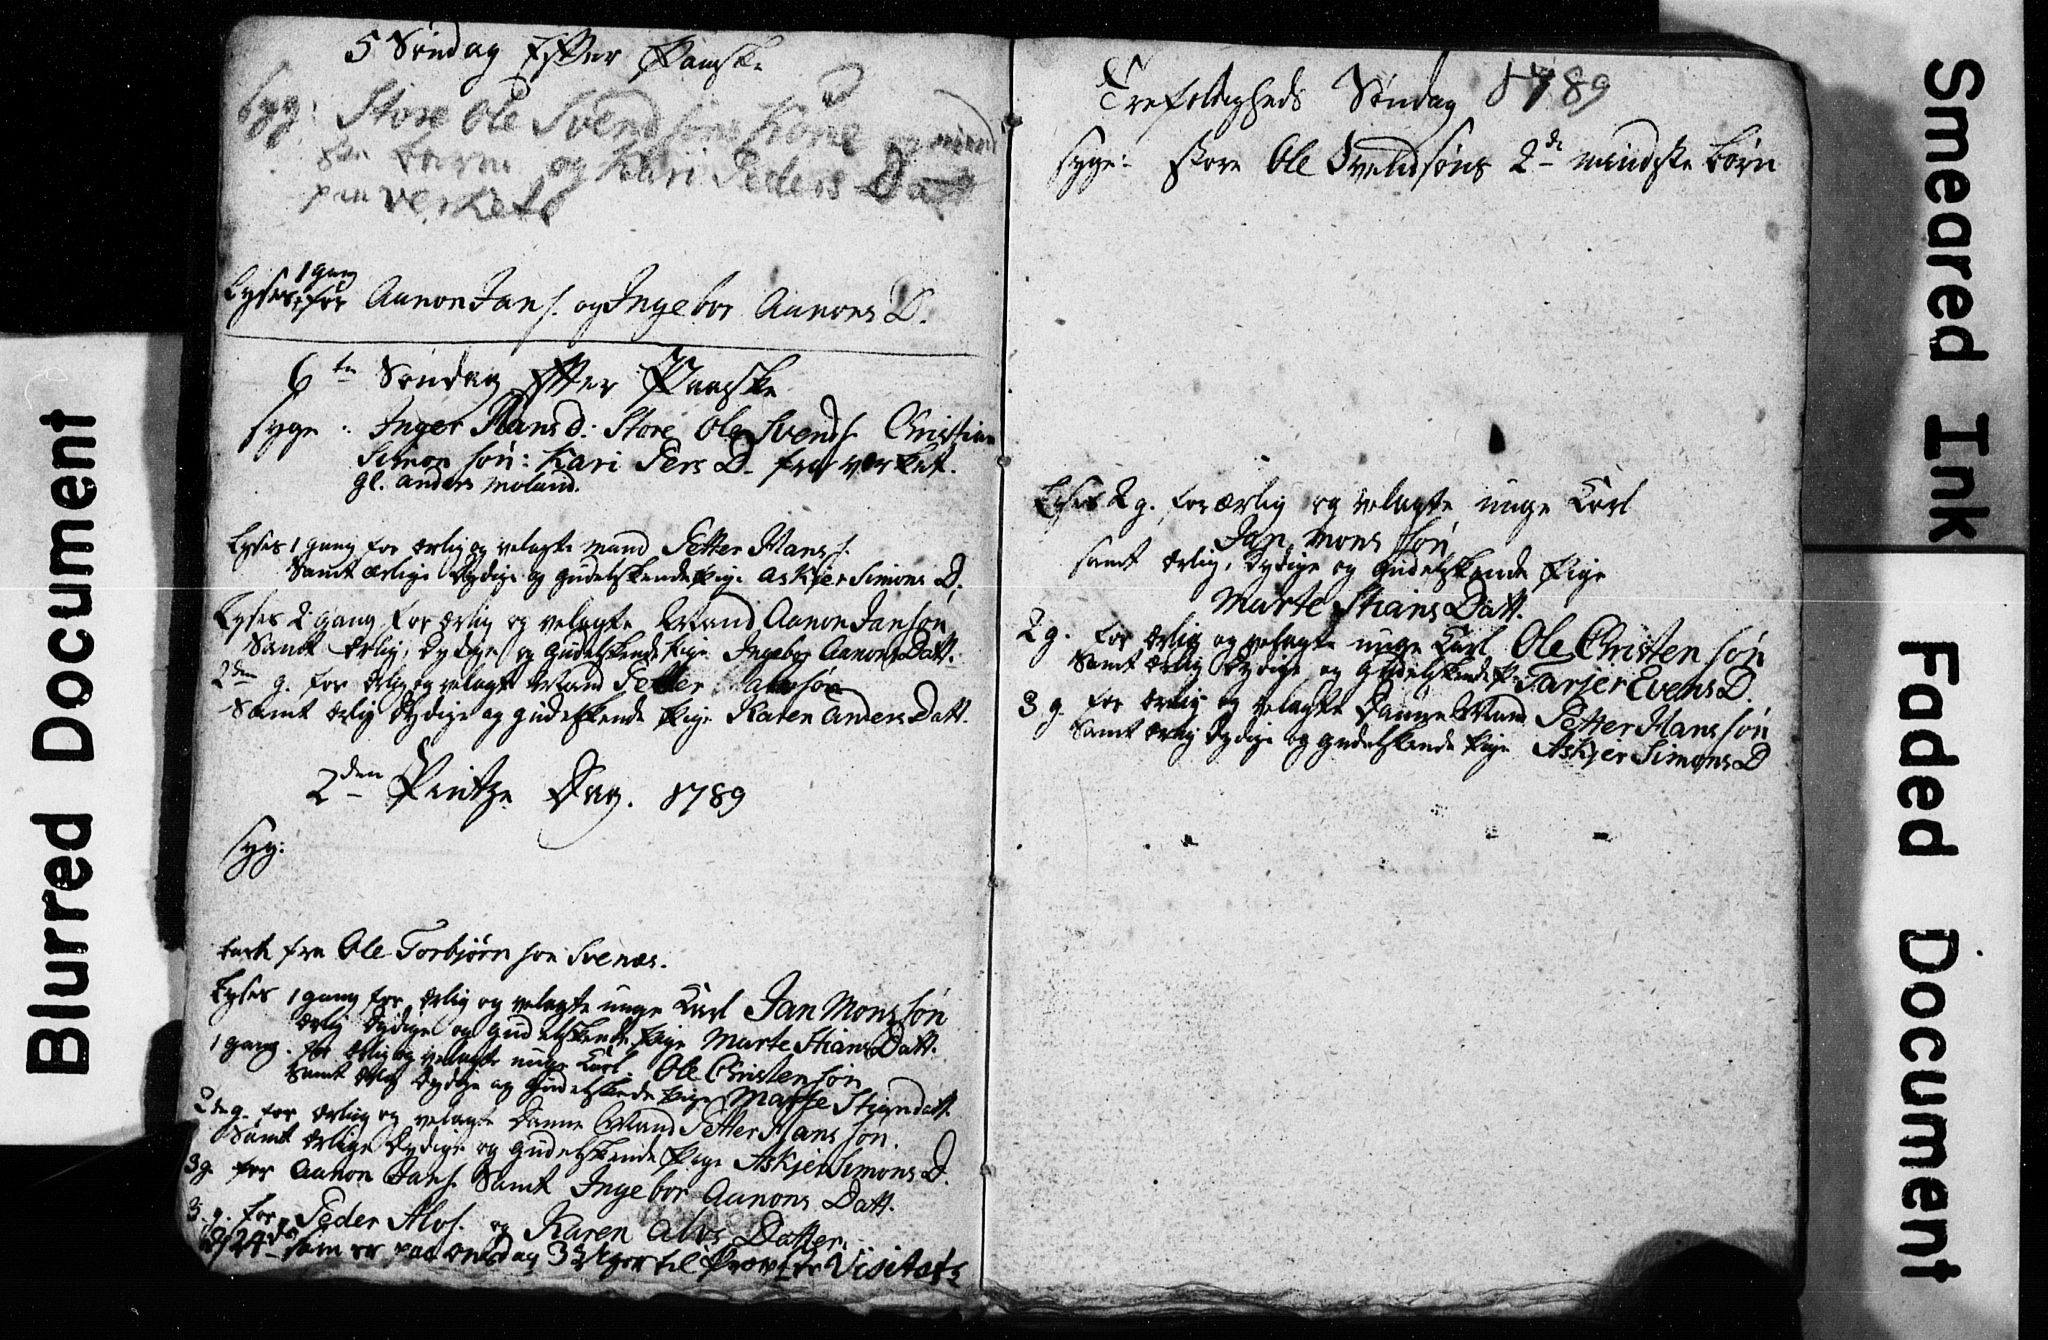 5 Søndag Efter Paaske
Syg: Store Ole Svendsøns Kone og mind
børn og Kari Peders Datt
paa verket
1 gang
Lyses for Aanon Jans. og Ingebor Aanons D.
6te Søndag Efter Paaske
syge: Inger Hans d: Store Ole Svends. Christian
Simon søn: Kari Pers D. fra verket.
gl. anders moland.
Lyses 1 gang for ærlig og velagte mand Petter Hans s.
Samt ærlige Dydige og gudelskende Pige Askjer Simons D.
Lyses 2 gang for ærlig og velagte Mand Aanon Jansøn
Samt Ærlig, Dydige og Gudelskende Pige Ingebor Aanons Datt.
2den g. for Ærlig og velagte Mand Petter
Samt ærlig Dydige og gudelskende Pige Karen Anders Datt.
2den Pintze Dag. 1789
syg:
tach fra Ole Torbjørn søn Svenæs.
Lyses 1 gang for ærlig og velagte unge Karl Jan Mons søn
ærlig Dydige og gudelskende Pige Marte Stians Datt.
1 gang. for ærlig og velagte unge Karl. Ole Christensøn
samt ærlig Dydige og gudelskende Pige Marte Stiansdatt.
2de g. for ærlig og velagte Danne Mand Petter Hans søn.
Samt ærlige Dydige og gudelskende Pige Askjer Simons D.
3 g. for Aanon Jans. Samt Ingebor Aanons Datt.
3. g. for Peder Alvs. og Karen Alvs Datter.
24de som er paa onsdag 3 Uger til Provste Visitats
Trefoldigheds Søndag 1789
syge: store Ole Svendsøns 2de mindste børn
Lyses 2 g. for ærlig og velagte unge Karl
Jan Mons søn
samt ærlig, Dydige og gudelskende Pige
Marte Stians Datt.
2 g. for ærlig og velagte unge Karl Ole Christen søn
Samt ærlig Dydige og Gudelskende P. Tarjer Evens D.
3 g. for ærlig og velagte Danne Mand Petter Hans søn
Samt ærlig Dydige og gudelskende Pige Askjer Simons D
Blurred Document
Smeared Ink
Faded Document